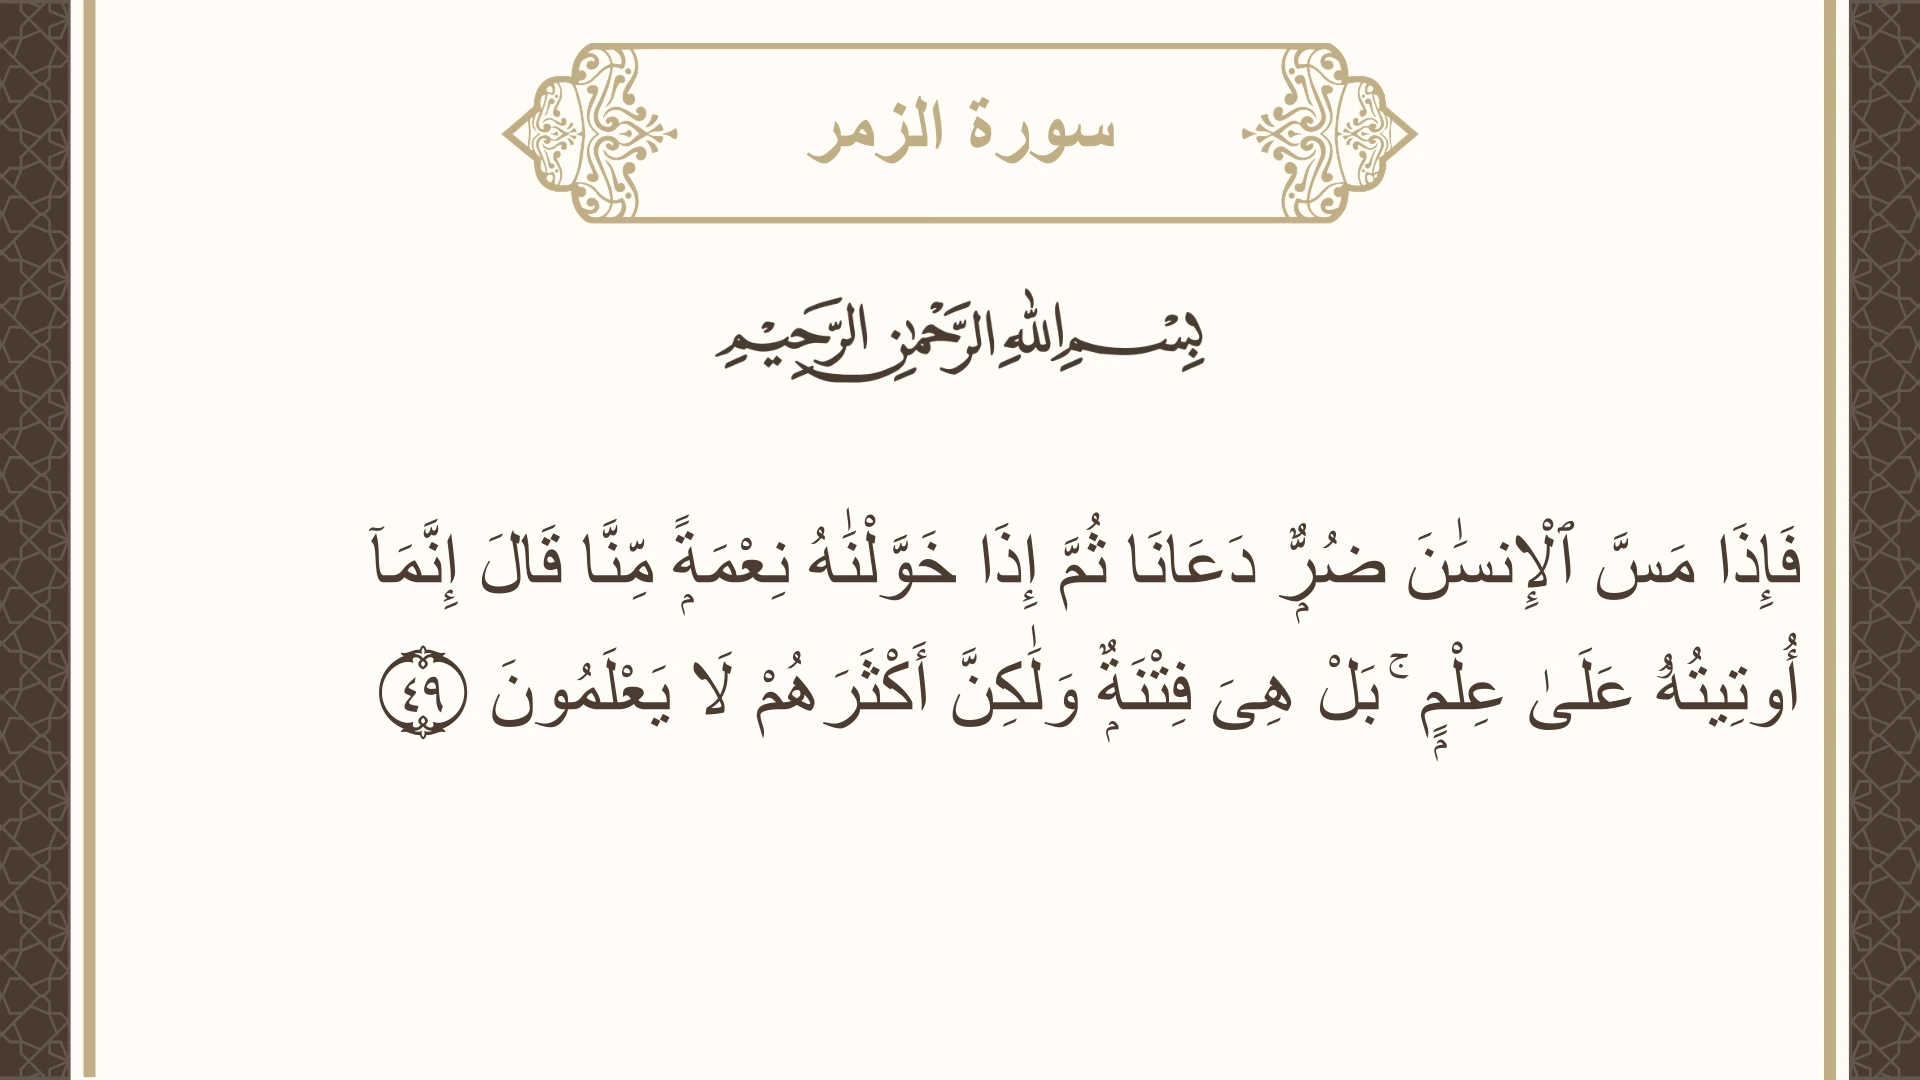 سورة الزمر
بِسْمِ اللهِ الرَّحْمٰنِ الرَّحِيْمِ
فَإِذَا مَسَّ ٱلْإِنسَٰنَ ضُرٌّۭ دَعَانَا ثُمَّ إِذَا خَوَّلْنَٰهُ نِعْمَةًۭ مِّنَّا قَالَ إِنَّمَآ
أُوتِيتُهُۥ عَلَىٰ عِلْمٍۭ ۚ بَلْ هِىَ فِتْنَةٌۭ وَلَٰكِنَّ أَكْثَرَهُمْ لَا يَعْلَمُونَ ٤٩